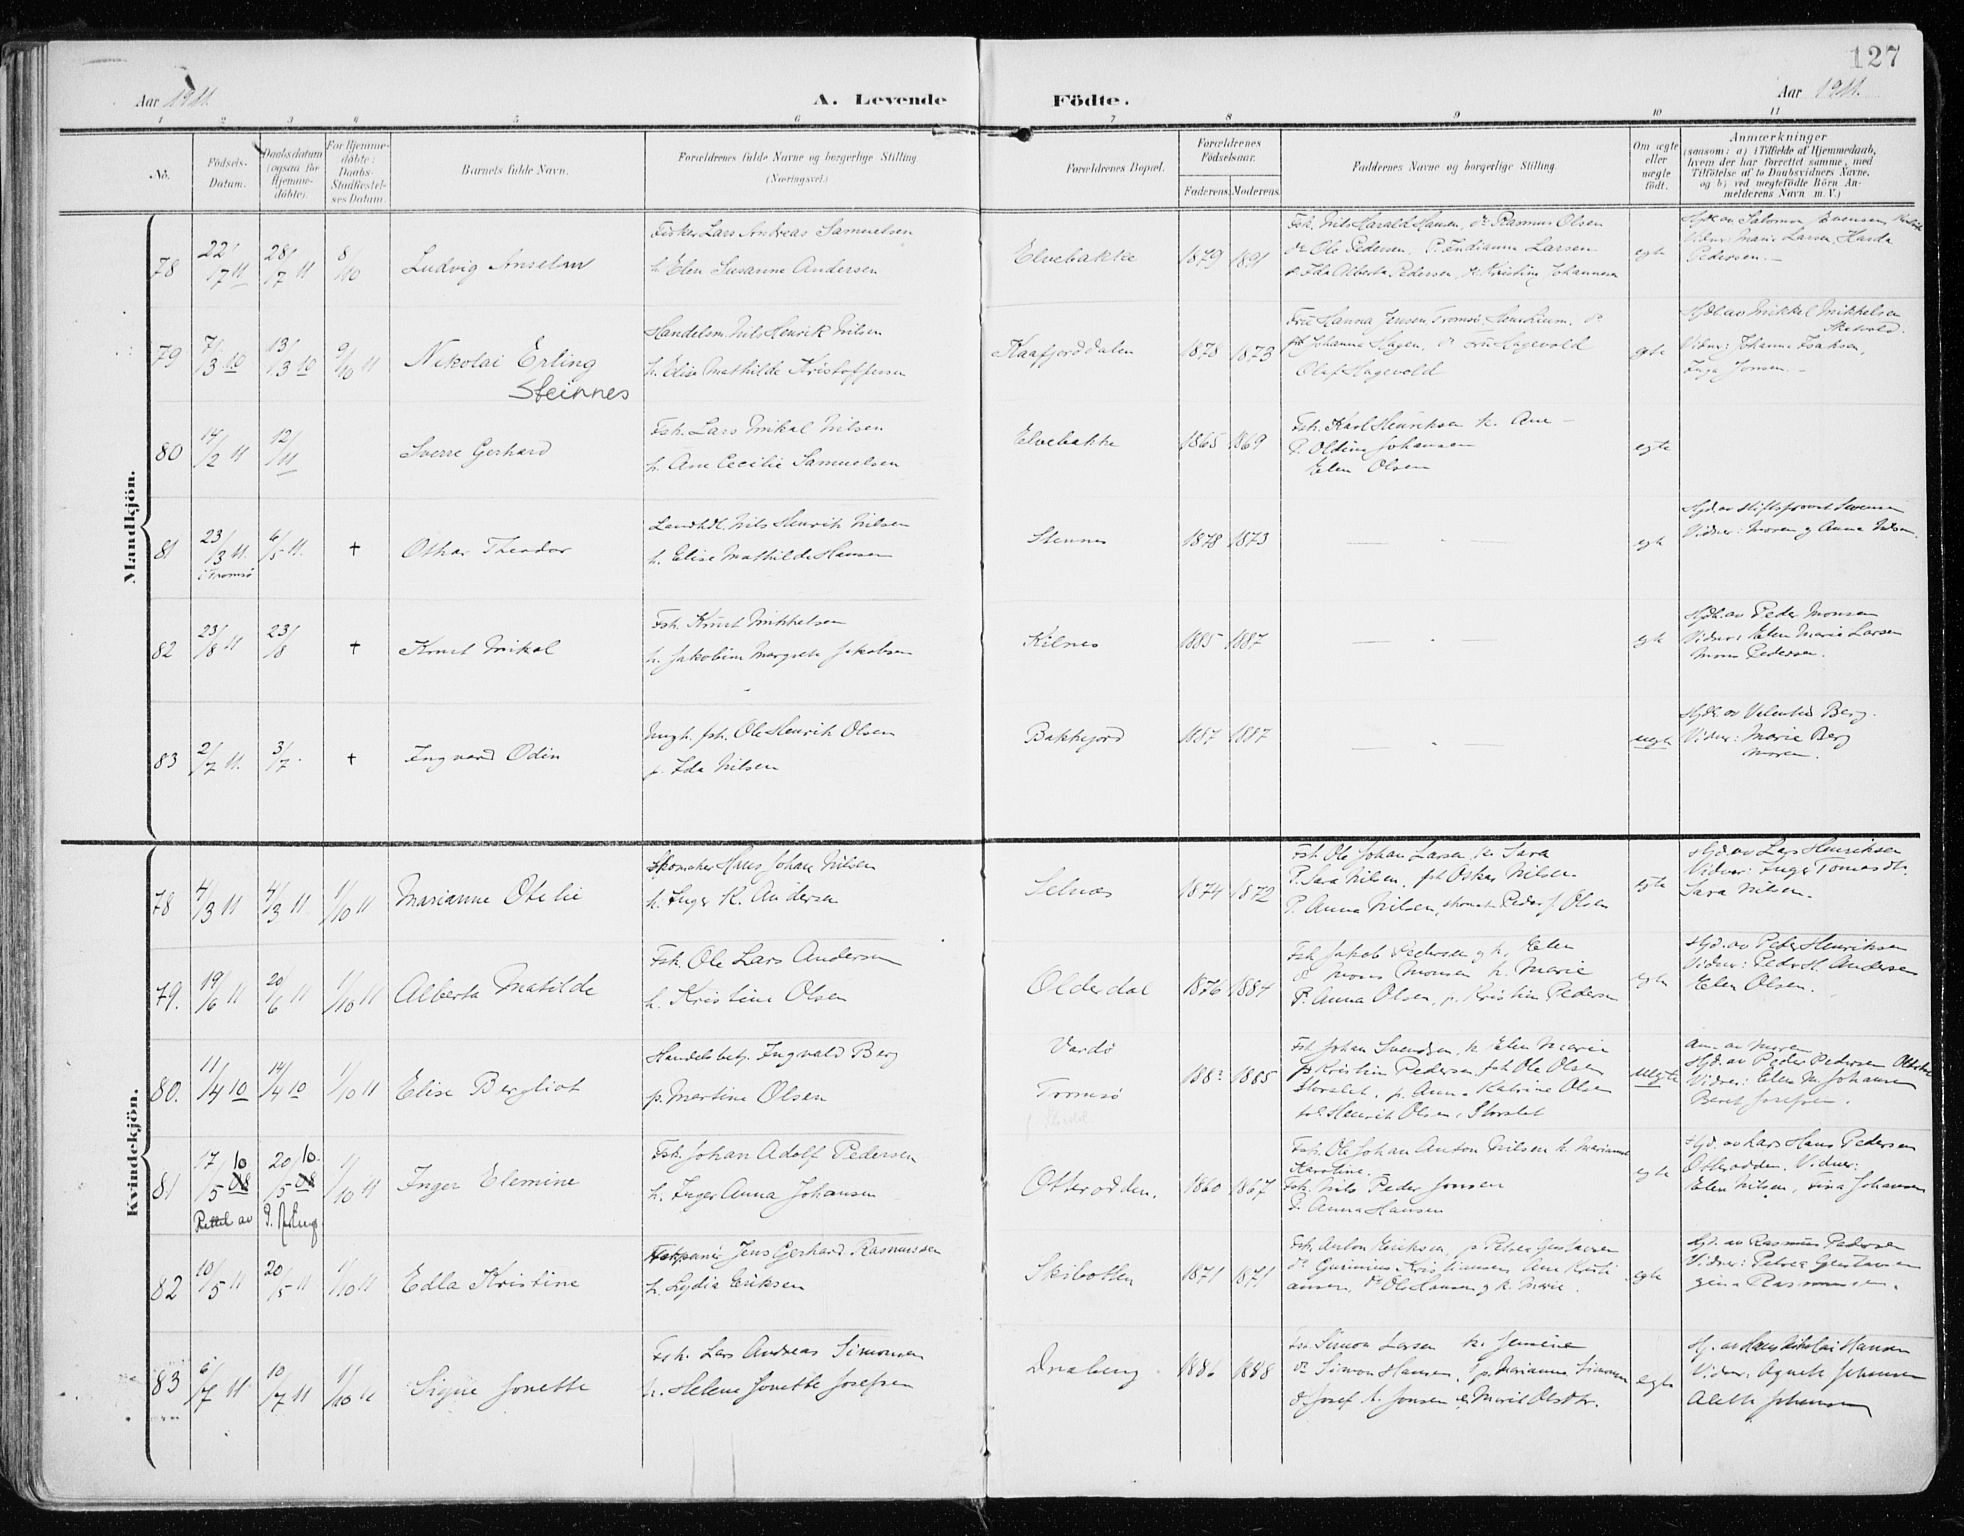 127
Aar 1911.
A. Levende Födte.
Aar 1911.
1 2 3 4 5 6 7 8 9 10 11
No.
Födsels-Datum.
Daabsdatum (ogsaa for Hjemme-döbte).
For Hjemme-döbte: Daabs-Stadfæstel-ses Datum.
Barnets fulde Navn.
Forældrenes fulde Navne og borgerlige Stilling. (Næringsvei.)
Forældrenes Bopæl.
Forældrenes Födselsaar.
Faderens. Moderens.
Faddernes Navne og borgerlige Stilling.
Om ægte eller uægte födt.
Anmærkninger (saasom: a) i Tilfælde af Hjemmedaab, hvem der har forrettet samme, med Tilföielse af to Daabsvidners Navne, og b) ved uegtefödte Börn An-melderens Navn m. V.)
Mandkjön.
78 22/7 11 28/7 11 8/10 Ludvig Anselm
Fisker Lars Andreas Samuelsen
h. Elen Susanne Andersen
Elvebakke 1879 1891
Fsk. Nils Harald Hansen, do Rasmus Olsen
do Ole Pedersen, P. Indianna Larsen
do Ida Alberta Pedersen, do Kristine Johannesen
egte
Vidner: Marie Larsen, Harda
Pedersen.
79 7/3 10 13/3 10 9/10 11 Nikolai Erling
Steinnes
Handelsm. Nils Henrik Nilsen
h. Elise Mathilde Kristoffersen
Kaafjorddalen 1878 1873
Fru Hanna Jensen Tromsö,
Johanna Hagen, do Fru Hagevold
Olaf Hagevold
egte
Hjdt. av Mikkel Mikkelsen
Vidner: Johanna Isaksen,
Inga Jonsen.
80 14/2 11 12/11 Sverre Gerhard
Fsk. Lars Mikal Nilsen
h. Ane Cecilie Samuelsen
Elvebakke 1865 1869
Fsk. Karl Henriksen h. Ane
P. Oldine Johansen
Elen Olsen
egte
81 23/3 11. 6/5 11. † Othar Theodor
i Tromsö
Landhdl. Nils Henrik Nilsen
h. Elise Mathilde Hansen
Stennes 1878 1873
egte
Hjd. av Stiftsprovst Svensen
Vidner: Moren og Anna Nilsen.
82 23/8 11 23/8 † Knut Mikal
Fsk. Knut Mikkelsen
h. Jakobine Margrete Jakobsen
Kilnes 1885 1887
egte
Hjdt. av Peder Monsen
Vidner: Elen Marie Larsen
Mons Pedersen.
83 2/7 11. 3/7. † Ingvard Odin
Ungk. fsk. Ole Henrik Olsen
p. Ida Nilsen
Bakkejord 1887 1887
uegte
Hjdt. av Valentin Berg.
Vidner: Marie Berg
moren.
Kvindekjön.
78 4/3 11 4/3 11 1/10 11 Marianne Otelie
Skomaker Hans Johan Nilsen
h. Inger K. Andersen
Selnæs 1874 1872
Fsk. Ole Johan Larsen, h. Sara
P. Sara Nilsen, fsk Oskar Nilsen
P. Anna Nilsen, Peder J Olsen
egte
Hjd. av Lars Henriksen
Vidner: Inger Tomasdt.
Sara Nilsen.
79. 19/6 11 20/6 11 1/10 11 Alberta Matilde
Fsk. Ole Lars Andersen
h. Kristine Olsen
Olderdal 1876 1884
Fsk Jakob Pedersen og h. Elen
do Mons Monsen h. Marie
P. Anna Olsen, p. Kristine Pedersen
egte
Hjd. av Peder Henriksen
Vidner: Peder H. Andersen
Elen Olsen.
80. 11/4 10 14/4 10 1/10 11 Elise Bergliot
Handelsbetj. Ingvald Berg
p. Martine Olsen
Vardö
Tromsö
188? 1885
Fsk Johan Svendsen, h Elen Marie
p. Kristine Pedersen, fsk Ole Olsen
Storslet, p. Anna Katrine Olsen
Henrik Olsen, Storslet
uegte
An. av Moren
Hjd. av Peder Pedersen
Vidner: Elen M. Johansen
Berit Josefsen.
81 17/5 08 10 20/5 08 10. 1/10 11 Inger Elemine
Rettet av
Fsk. Johan Adolf Pedersen
h. Inger Anna Johansen
Otterodden. 1860 1867
Fsk. Ole Johan Anton Nilsen h. Marianne
Karoline.
Fsk. Nils Peder Jonsen
P. Anna Hansen
egte
Hjd. av Lars Hans Pedersen
Otterodden. Vidner:
Elen Nilsen, Sina Johansen
82 10/5 11 20/5 11 1/10 11 Edla Kristine
Jens Gerhard Rasmussen
h. Lydia Eriksen
Skibotten 1871 1871
Fsk. Anton Henriksen, p. Petrea Gustavsen
do Gurinius Kristiansen, Ane Kristi-
ansen, do Ole Hansen og h. Marie.
egte
Hjd. av Rasmus Pedersen
Vidner: Petrea Gustavsen
gina Rasmussen.
83 6/7 11 10/7 11 1/10 11 Signe Jonette
Fsk. Lars Andreas Simonsen
h. Helene Jonette Josefsen
Dnaberg 1886 1888
Fsk. Simon Larsen h.
do Simon Hansen, p. Marianne Simonsen
do Josef A. Jonsen & Marit Olsdtr.
egte
Hj. av Hans Nikolai Hansen
Vidner: Agnete Johansen
Aleth Johansen